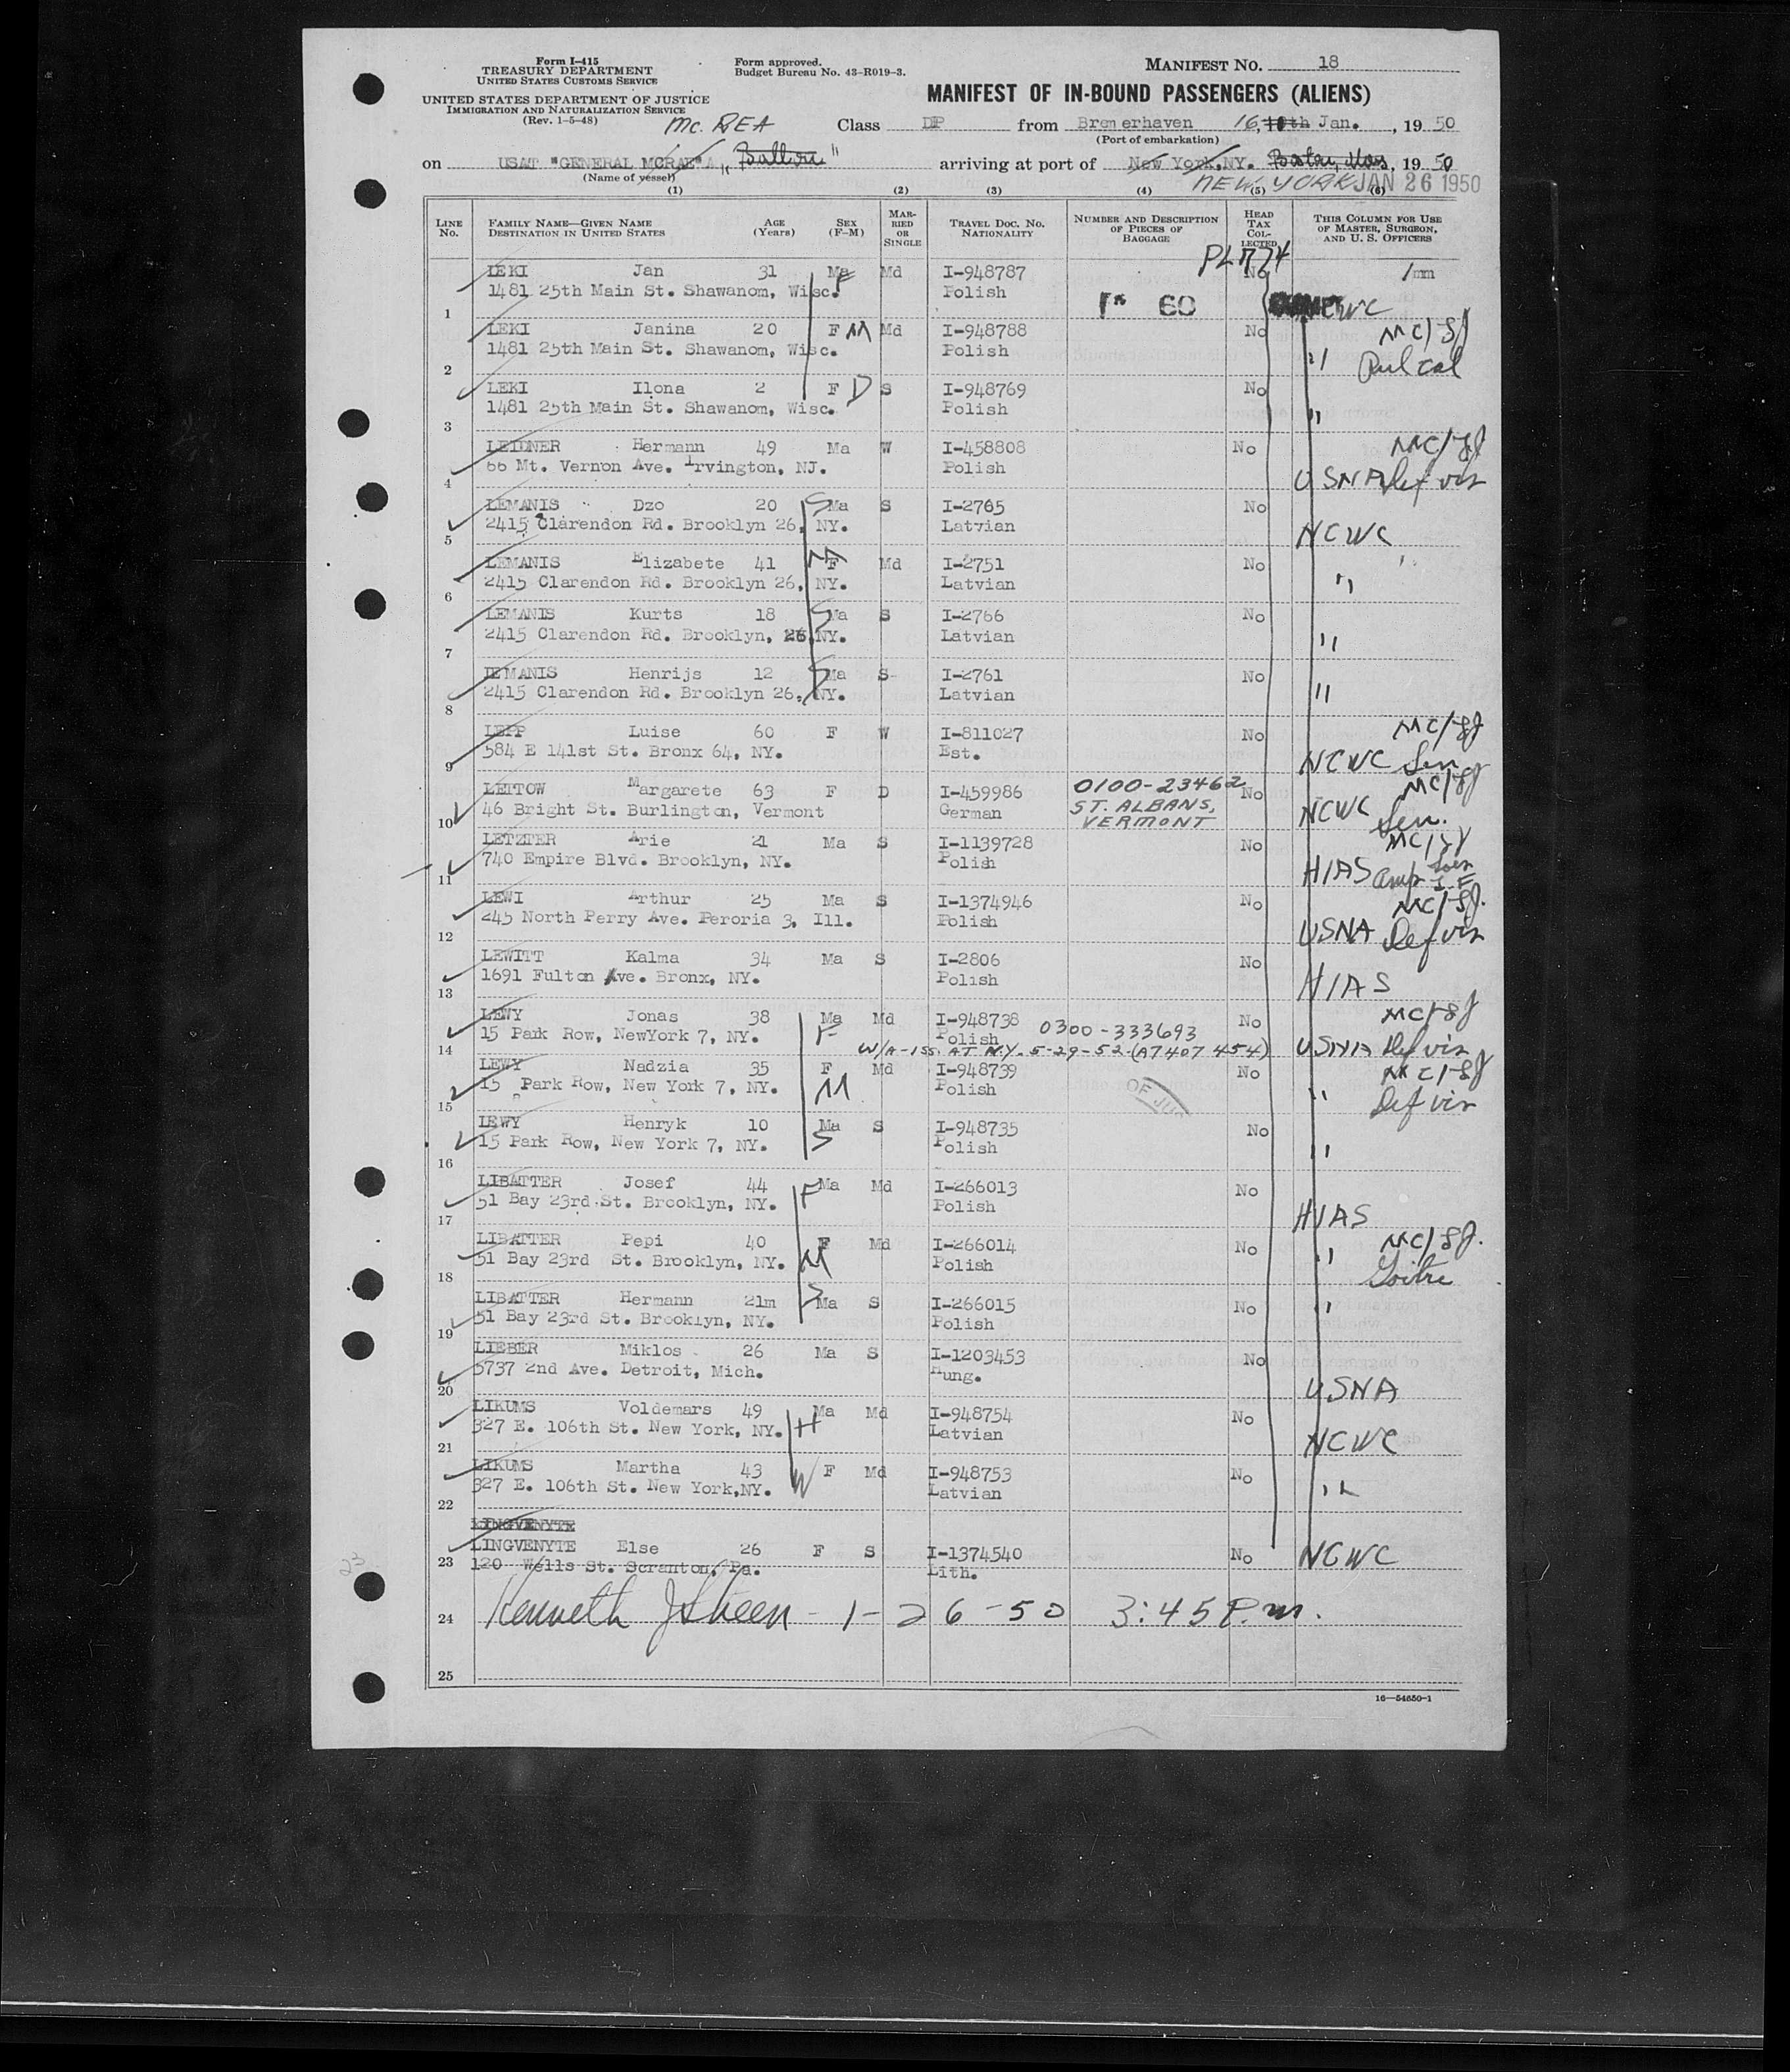 Form I-415
TREASURY DEPARTMENT
UNITED STATES CUSTOMS SERVICE
UNITED STATES DEPARTMENT OF JUSTICE
IMMIGRATION AND NATURALIZATION SERVICE
(Rev. 1-5-48)
Form approved.
Budget Bureau No. 43-R019-3.
MANIFEST NO. 18
MANIFEST OF IN-BOUND PASSENGERS (ALIENS)
Mc. REA
Class DP from Bremerhaven 16, 10th Jan., 1950
(Port of embarkation)
on USAT "GENERAL MCRAE" "Ballou" arriving at port of New York, NY. Boston, Mass, 1950
(Name of vessel)
NEW YORK JAN 26 1950
(1) (2) (3) (4) (5) (6)
LINE No. FAMILY NAME—GIVEN NAME DESTINATION IN UNITED STATES AGE (Years) SEX (F-M) MARRIED OR SINGLE TRAVEL DOC. NO. NATIONALITY NUMBER AND DESCRIPTION OF PIECES OF BAGGAGE HEAD TAX COLLECTED THIS COLUMN FOR USE OF MASTER, SURGEON, AND U. S. OFFICERS
PL 774
LEKI Jan 31 Ma F Md I-948787 No 1mm
1481 25th Main St. Shawanom, Wisc. Polish
1 60 NCWC
LEKI Janina 20 F M Md I-948788 No MC/SJ
1481 25th Main St. Shawanom, Wisc. Polish " Pul cal
2
LEKI Ilona 2 F D S I-948769 No
1481 25th Main St. Shawanom, Wisc. Polish "
3
LEIDNER Hermann 49 Ma W I-458808 No MC/SJ
66 Mt. Vernon Ave. Irvington, NJ. Polish
4 USNA Def vis
LEMANIS Dzo 20 S Ma S I-2765 No
2415 Clarendon Rd. Brooklyn 26, NY. Latvian
5 NCWC
LEMANIS Elizabete 41 M F Md I-2751 No
2415 Clarendon Rd. Brooklyn 26, NY. Latvian "
6
LEMANIS Kurts 18 S Ma S I-2766 No
2415 Clarendon Rd. Brooklyn, 26, NY. Latvian "
7
LEMANIS Henrijs 12 S Ma S I-2761 No
2415 Clarendon Rd. Brooklyn 26, NY. Latvian "
8
LEPP Luise 60 F W I-811027 No MC/SJ
584 E 141st St. Bronx 64, NY. Est.
9 NCWC Sen
LETTOW Margarete 63 F D I-459986 0100-23462 No MC/SJ
46 Bright St. Burlington, Vermont German ST. ALBANS, NCWC
10 VERMONT Sen.
LETZTER Arie 21 Ma S I-1139728 No MC/SJ
740 Empire Blvd. Brooklyn, NY. Polish
11 HIAS Amp
LEWI Arthur 25 Ma S I-1374946 No MC/SJ.
245 North Perry Ave. Peroria 3, Ill. Polish
12 USNA Def vis
LEWITT Kalma 34 Ma S I-2806 No
1691 Fulton Ave. Bronx, NY. Polish
13 HIAS
LEWY Jonas 38 Ma Md I-948738 No MC/SJ
15 Park Row, NewYork 7, NY. F Polish 0300-333693
14 W/A-155 AT N.Y. 5-29-52 (A7 407 454) USNA Def vis
LEWY Nadzia 35 F Md I-948739 No MC/SJ
15 Park Row, New York 7, NY. M Polish OF JU " Def vis
15
LEWY Henryk 10 Ma S I-948735 No
15 Park Row, New York 7, NY. S Polish "
16
LIBATTER Josef 44 F Ma Md I-266013 No
51 Bay 23rd St. Brooklyn, NY. Polish
17 HIAS
LIBATTER Pepi 40 F Md I-266014 No MC/SJ.
51 Bay 23rd St. Brooklyn, NY. M Polish " Goitre
18
LIBATTER Hermann 21m S Ma S I-266015 No "
51 Bay 23rd St. Brooklyn, NY. Polish
19
LIEBER Miklos 26 Ma S I-1203453 No
5737 2nd Ave. Detroit, Mich. Hung.
20 USNA
LIKUMS Voldemars 49 Ma Md I-948754 No
327 E. 106th St. New York, NY. H Latvian
21 NCWC
LIKUMS Martha 43 F Md I-948753 No
327 E. 106th St. New York,NY. W Latvian "
22
LINGVENYTE
LINGVENYTE Else 26 F S I-1374540 No NCWC
23 120 Wells St. Scranton, Pa. Lith.
23
24 Kenneth J Sheen - 1-26-50 3:45 P.m.
25
16—54650-1